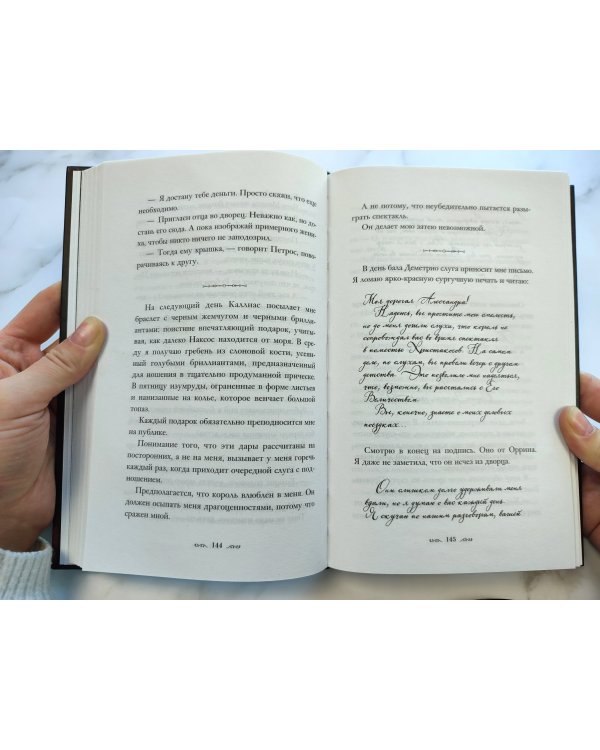 — Я достану тебе деньги. Просто скажи, что еще
необходимо.
— Пригласи отца во дворец. Неважно как, но до-
ставь его сюда. А пока изображай примерного жени-
ха, чтобы никто ничего не заподозрил.
— Тогда ему крышка, — говорит Петрос, пово-
рачиваясь к другу.
На следующий день Каллиас посылает мне
браслет с черным жемчугом и черными брилли-
антами: поистине впечатляющий подарок, учиты-
вая, как далеко Наксос находится от моря. В сре-
ду я получаю гребень из слоновой кости, усеян-
ный голубыми бриллиантами, предназначенный
для ношения в тщательно продуманной прическе.
В пятницу изумруды, ограненные в форме листьев
и нанизанные на колье, которое венчает большой
топаз.
Каждый подарок обязательно преподносится мне
на публике.
Понимание того, что эти дары рассчитаны на
посторонних, а не на меня, вызывает у меня горечь
каждый раз, когда приходит очередной слуга с под-
ношением.
Предполагается, что король влюблен в меня. Он
должен осыпать меня драгоценностями, потому что
сражен мной.
144
А не потому, что неубедительно пытается разы-
грать спектакль.
Он делает мою затею невозможной.
В день бала Деметрио слуга приносит мне письмо.
Я ломаю ярко-красную сургучную печать и читаю:
Моя дорогая Алессандра!
Надеюсь, вы простите мою смелость,
но до меня дошли слухи, что король не
сопровождал вас во время спектакля
в поместье Христакосов. На самом
деле, по слухам, вы провели вечер с другом
детства. Это позволило мне надеяться,
что, возможно, вы расстались с Его
Величеством.
Вы, конечно, знаете о моих деловых
поездках...
Смотрю в конец на подпись. Оно от Оррина.
Я даже не заметила, что он исчез из дворца.
Они слишком долго удерживали меня
вдали, но я думаю о вас каждый день.
Я скучаю по нашим разговорам, вашей
145